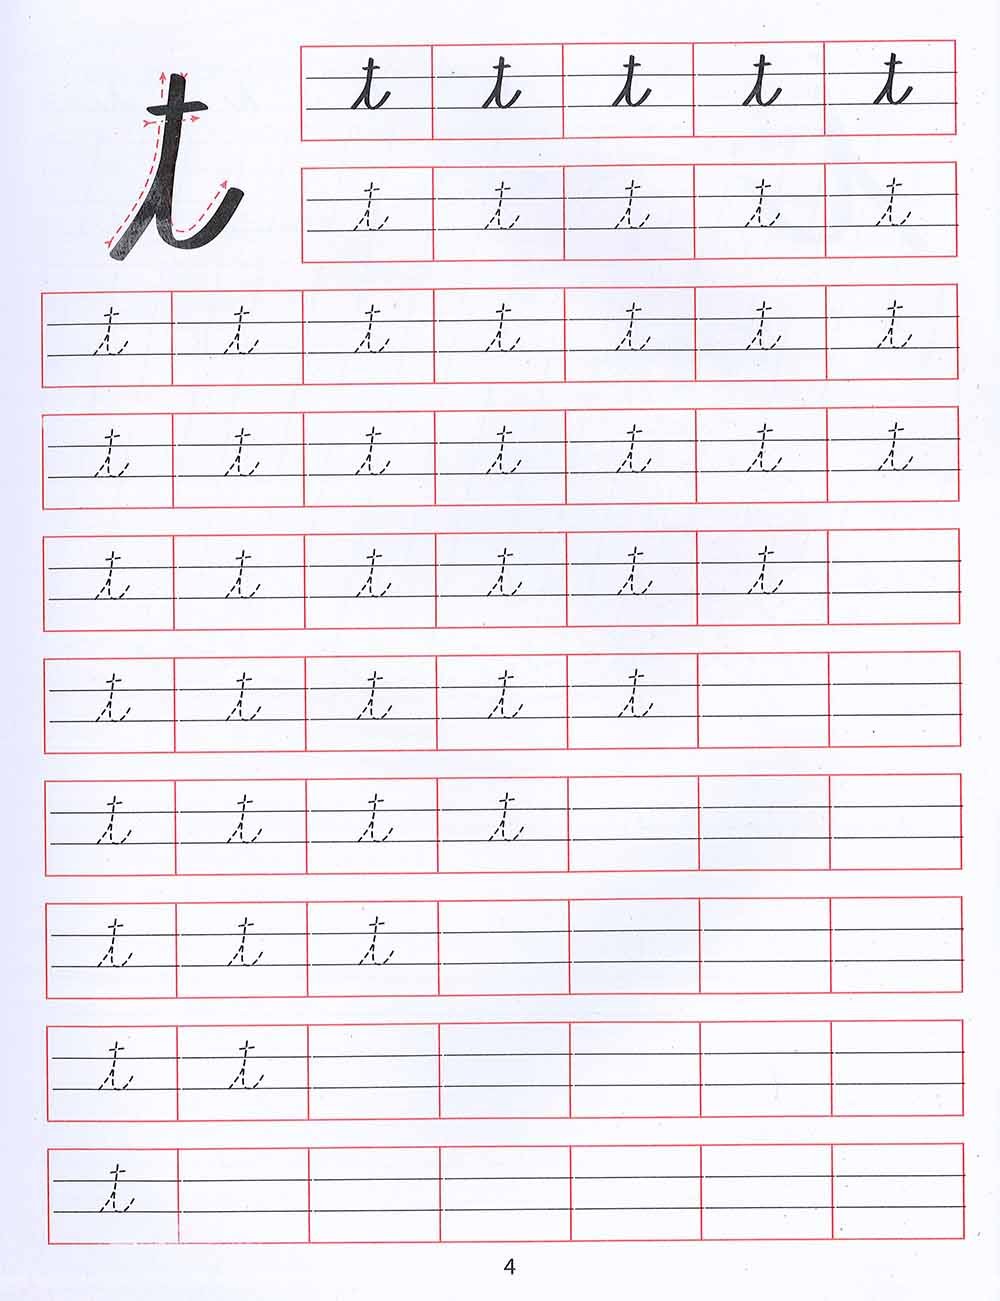 t
t t t t t
t t t t t
t t t t t t t
t t t t t t t
t t t t t t
t t t t t
t t t t
t t t
t t
t
4